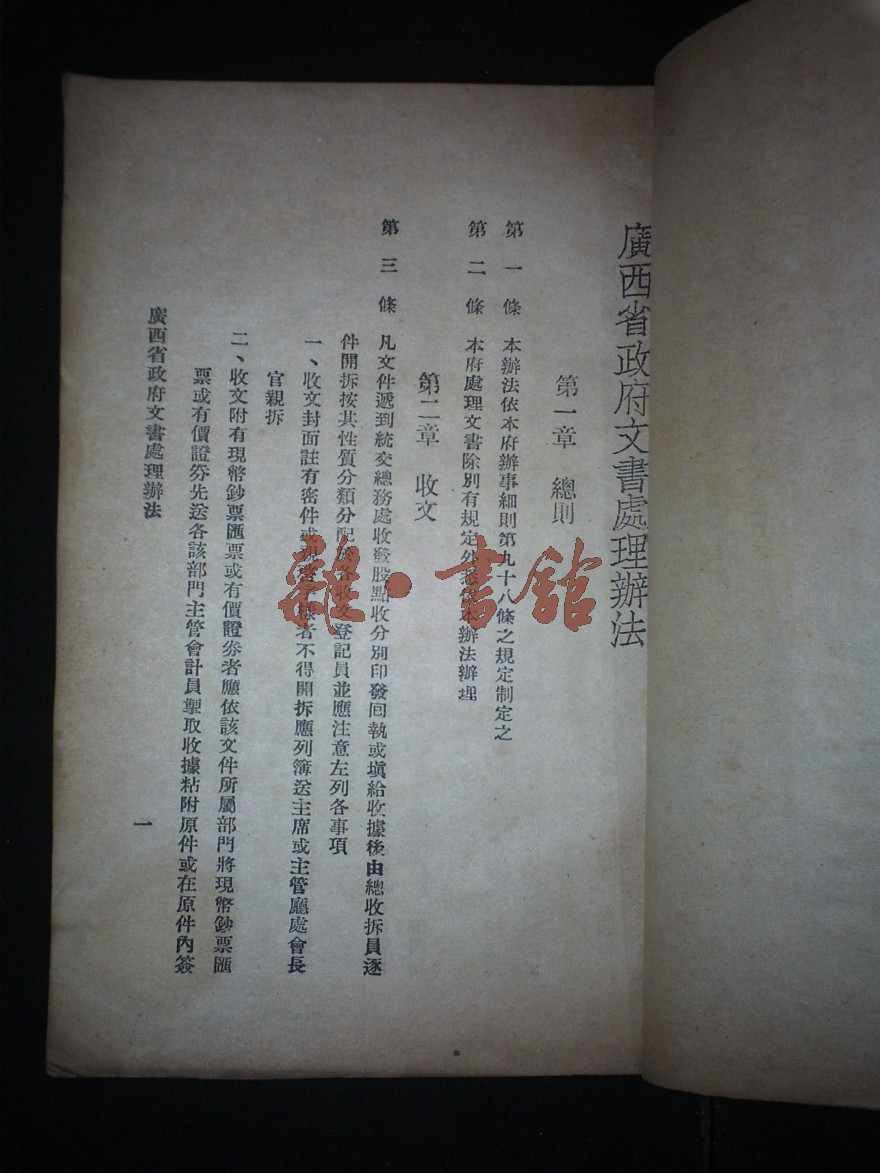 廣西省政府文書處理辦法
第一章 總則
第一條 本辦法依本府辦事細則第九十八條之規定制定之
第二條 本府處理文書除別有規定外悉依本辦法辦理
第二章 收文
第三條 凡文件遞到統交總務處收發股點收分別印發回執或塡給收據後由總收拆員逐
件開拆按其性質分類分配於各收文登記員並應注意左列各事項
一、收文封面註有密件或親啓字樣者不得開拆應列簿送主席或主管廳處會長
官親拆
二、收文附有現幣鈔票匯票或有價證券者應依該文件所屬部門將現幣鈔票匯
票或有價證券先送各該部門主管會計員掣取收據粘附原件或在原件內簽
廣西省政府文書處理辦法
一
雜·書館